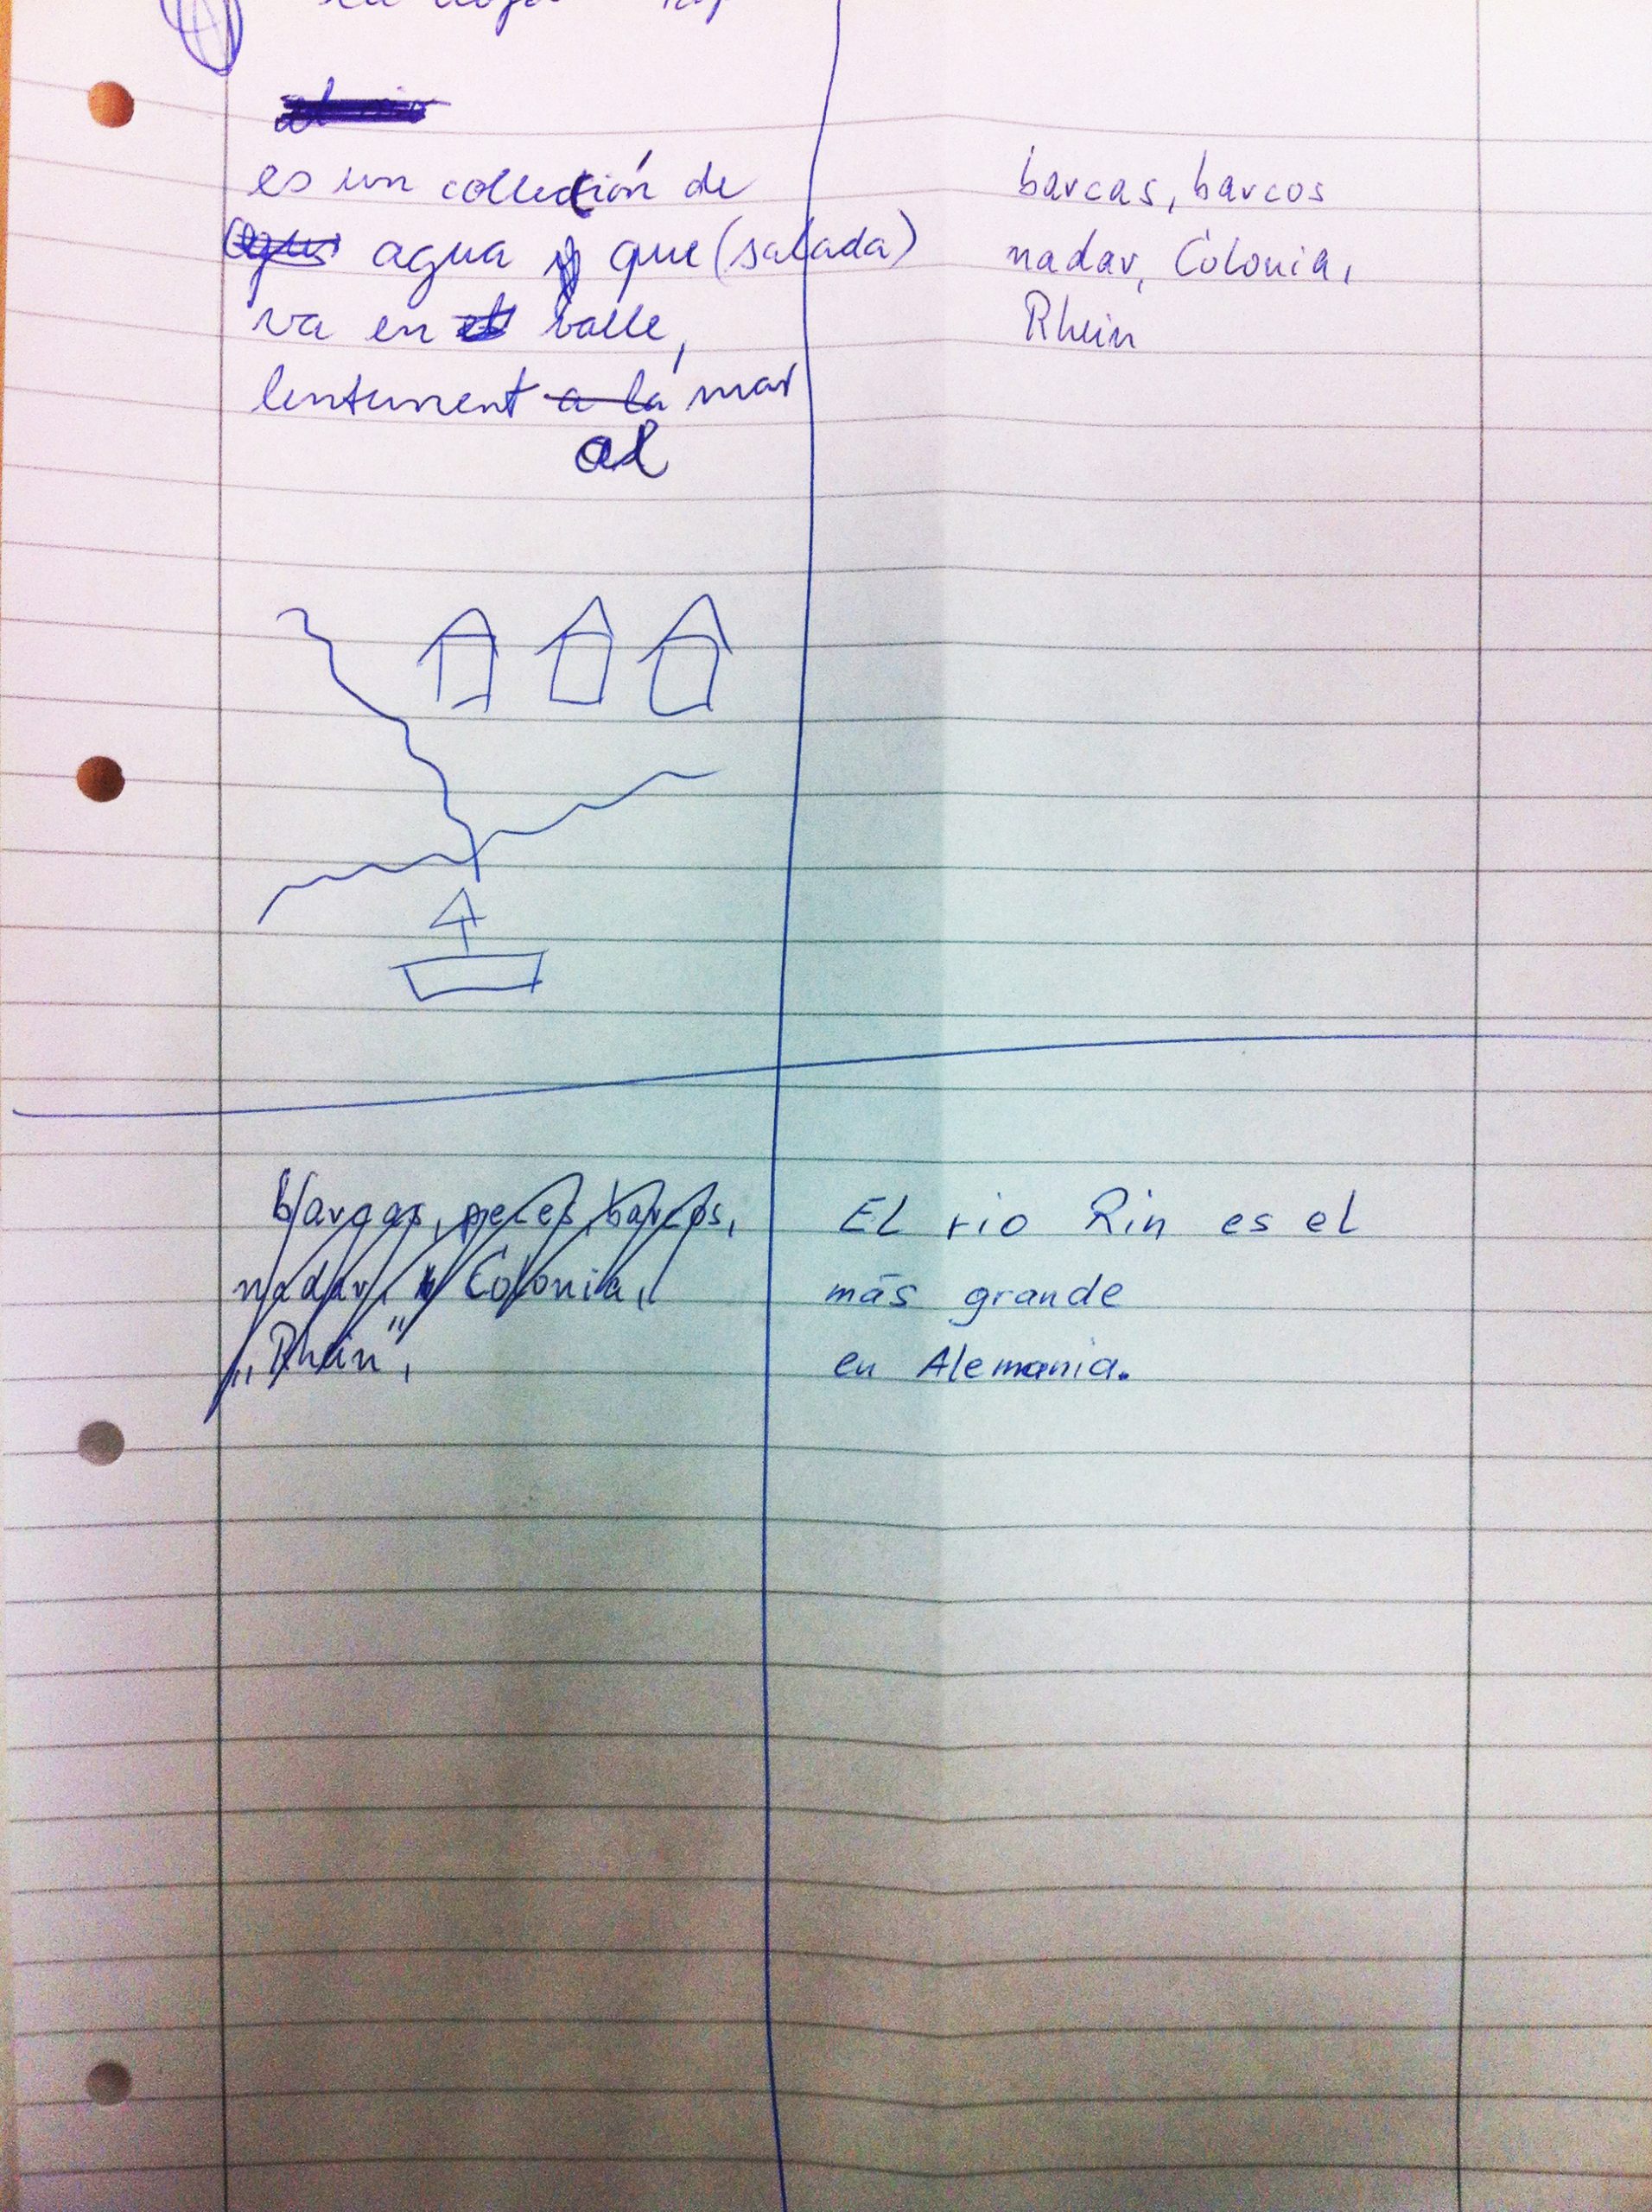 es un collección de
agua que (salada)
va en valle,
lentument a la mar
al
barcas, barcos
nadar, Colonia,
Rhein
Bargas, peces, barcos,
nadar, Colonia,
„Rhein",
El rio Rin es el
más grande
en Alemania.